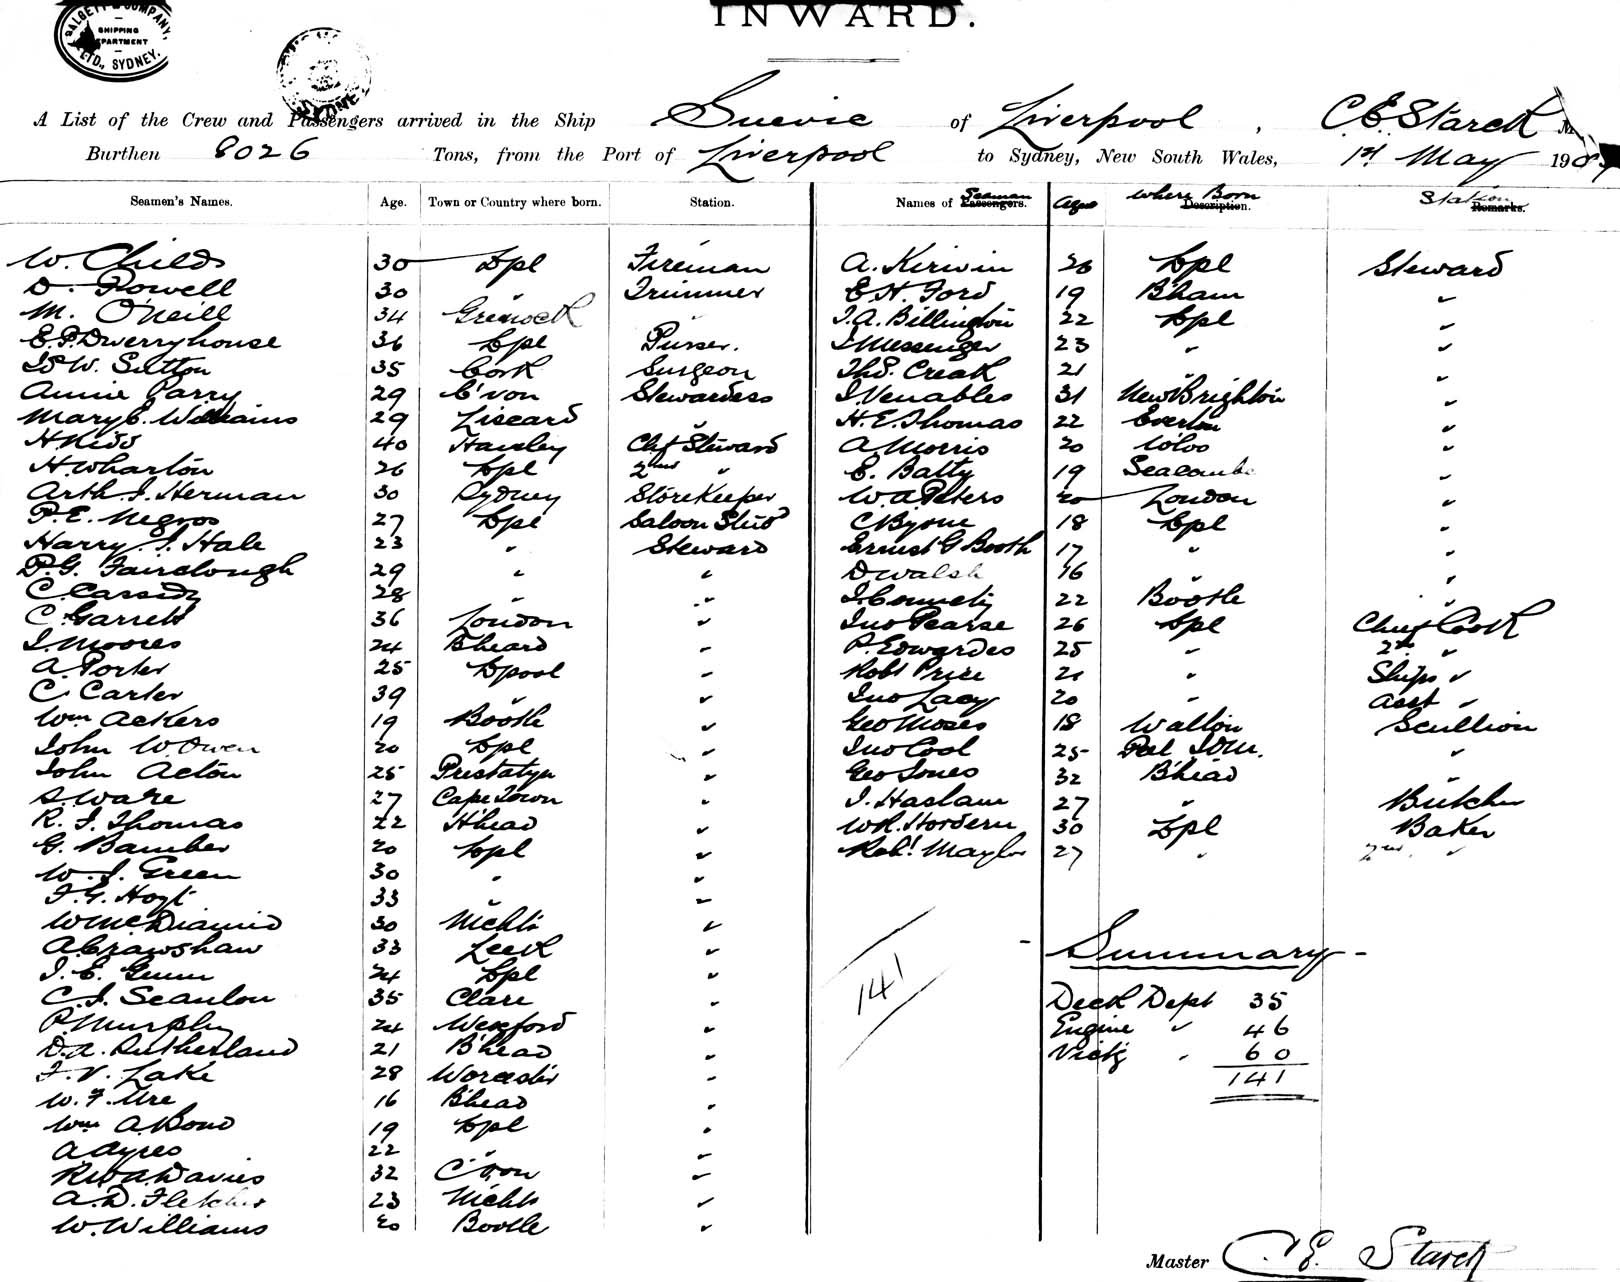 DALGETY & COMPANY, LTD., SYDNEY.
SHIPPING DEPARTMENT
SYDNEY
INWARD.
A List of the Crew and Passengers arrived in the Ship Suevic of Liverpool, C E Starck
Burthen 8026 Tons, from the Port of Liverpool to Sydney, New South Wales, 1st May 190
Seamen's Names. Age. Town or Country where born. Station.
W. Childs 30 Lpl Fireman
D. Powell 30 " Trimmer
M. O'Neill 34 Greenock "
E.P. Dwerryhouse 36 Lpl Purser.
W. Sutton 35 Cork Surgeon
Annie Parry 29 C'von Stewardess
Mary E. Williams 29 Liscard "
H Kidd 40 Hanley Chf Steward
H. Wharton 26 Lpl 2nd "
Arth J. Herman 30 Sydney StoreKeeper
P. E. Negros 27 Lpl Saloon Stwd
Harry J. Hale 23 " Steward
P. G. Fairclough 29 " "
C. Cassidy 28 " "
C. Garrett 36 London "
J. Moores 24 B'head "
A. Porter 25 L'pool "
C. Carter 39 " "
Wm Ackers 19 Bootle "
John W Owen 20 Lpl "
John Acton 25 Prestatyn "
S. Ware 27 Cape Town "
R. J. Thomas 22 H'head "
G. Bamber 20 Lpl "
W. J. Green 30 " "
F. G. Hoyt 33 " "
W McDiamid 30 "
A Crawshaw 33 Leek "
J. E. Gunn 24 Lpl "
C. J. Scanlon 35 Clare "
P. Murphy 24 Wexford "
D. A. Rutherland 21 B'head "
F. V. Lake 28 Worcester "
W. F. Ure 16 B'head "
Wm A. Bond 19 Lpl "
A Ayres 22 " "
R W A Davies 32 C'von "
A. D. Fletcher 23 "
W. Williams 20 Bootle "
Names of Seaman Passengers. Age Where Born Description. Station Remarks.
A. Kirwin 26 Lpl Steward
E. H. Ford 19 B'ham "
J. A. Billington 22 Lpl "
J Messenger 23 " "
Thos. Creak 21 " "
J. Venables 31 New Brighton "
H. E. Thomas 22 Everton "
A. Morris 20 "
E. Batty 19 Seacombe "
W. A. Peters 20 London "
C Byrne 18 Lpl "
Ernest G Booth 17 " "
D Walsh 16 " "
J. Connely 22 Bootle "
Jno Pearse 26 Lpl Chief Cook
P. Edwardes 25 " 2nd "
Robt Price 21 " Ships "
Jno Lacy 20 " Asst "
Geo Moses 18 Walton Scullion
Jno Cool 25 Peel IOM. "
Geo Jones 32 B'head "
J. Haslam 27 " Butcher
W R. Hordern 30 Lpl Baker
Robt Maylor 27 " 2nd "
141
Summary
Deck Dept 35
Engine " 46
Victg " 60
141
Master C. E. Starck